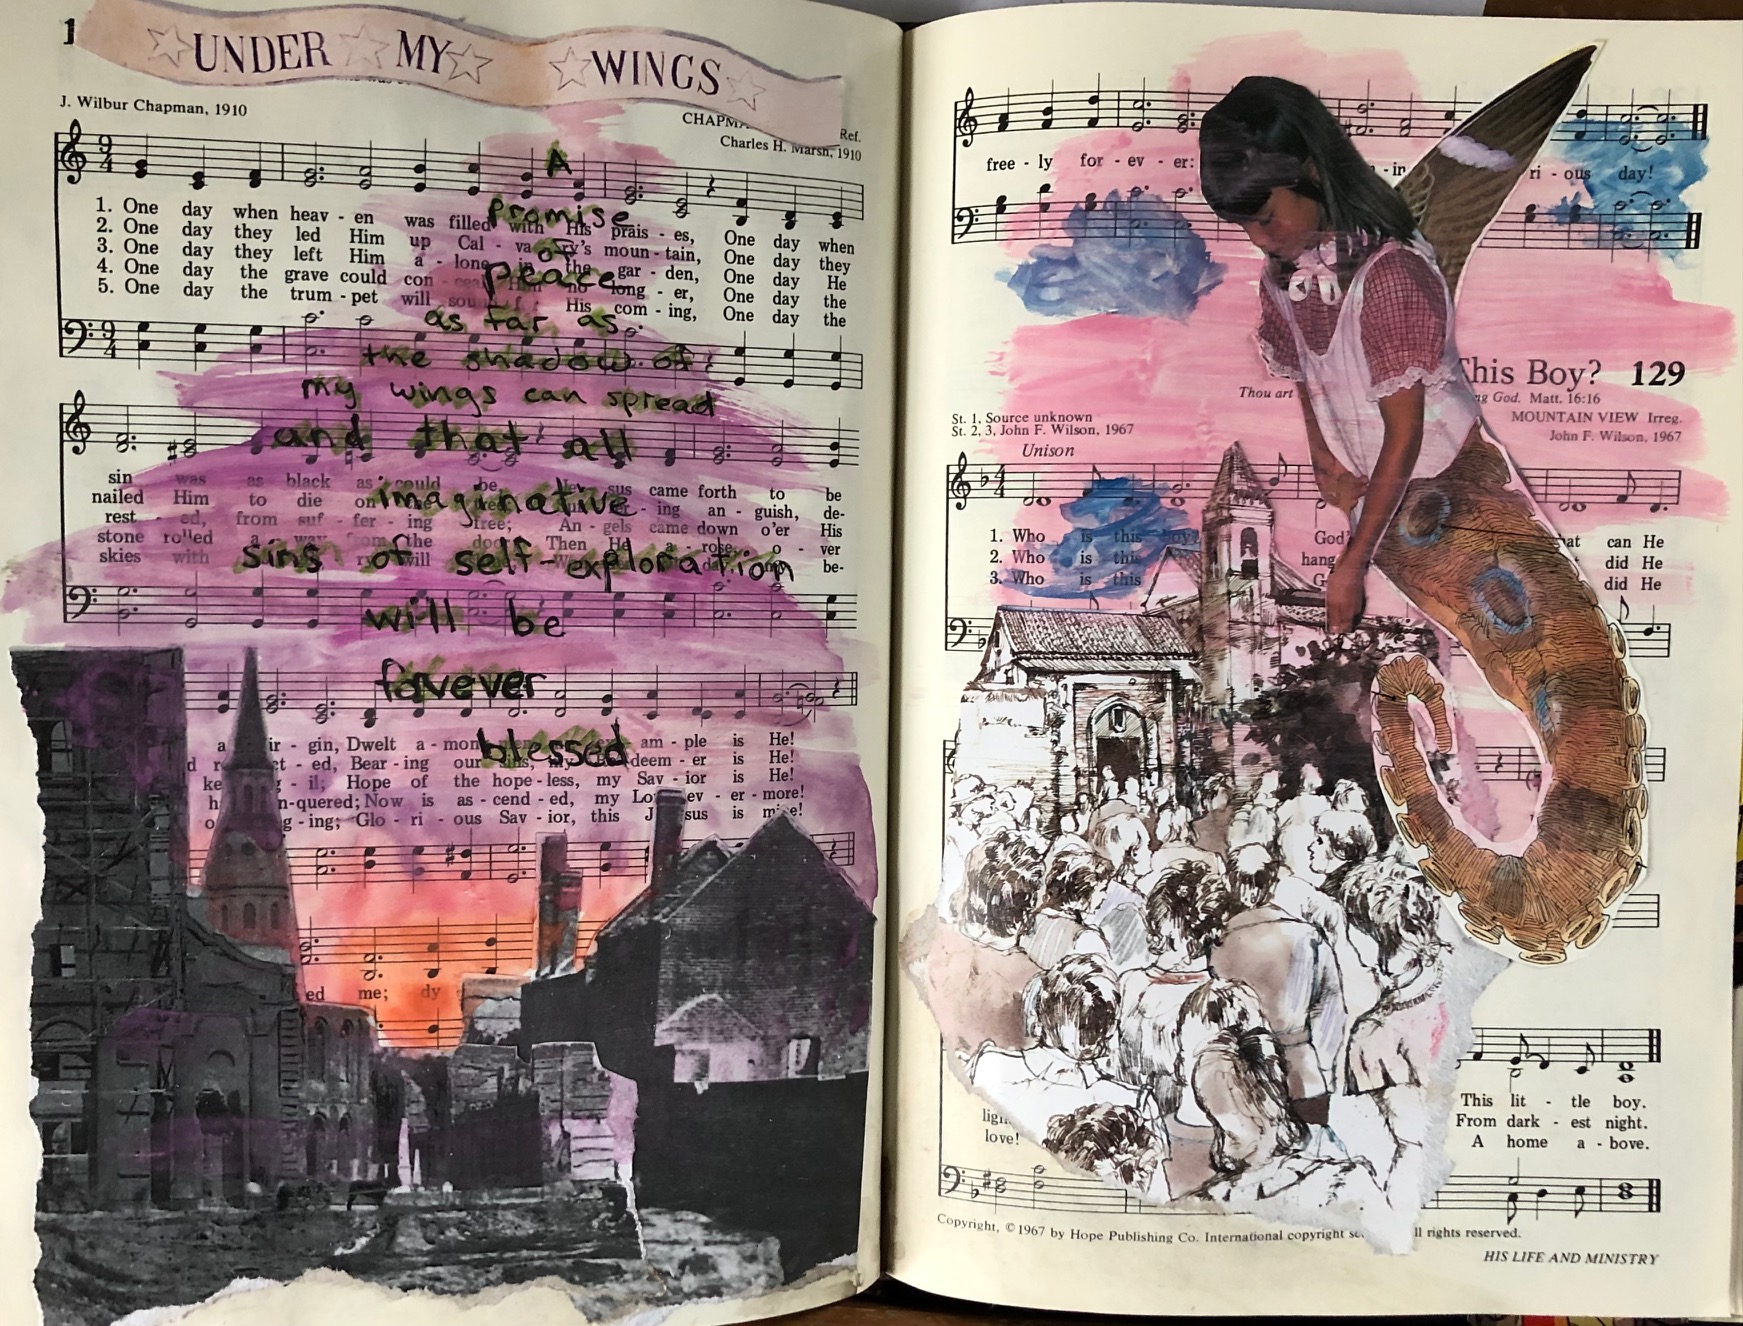 1
UNDER MY WINGS
J. Wilbur Chapman, 1910
Ref.
Charles H. Marsh, 1910
A
promise
of
peace
as far as
the shadow of
my wings can spread
and that all
imaginative
sins of self-exploration
will be
forever
blessed
1. One day when heav - en was filled with His prais - es, One day when
2. One day they led Him up Cal - va - ry's moun - tain, One day they
3. One day they left Him a - lone in the gar - den, One day He
4. One day the grave could con - ceal Him no long - er, One day the
5. One day the trum - pet will sound for His com - ing, One day the
sin was as black as could be, sus came forth to be
nailed Him to die on ing an - guish, de-
rest - ed, from suf - fer - ing free; An - gels came down o'er His
stone rolled a - way from the door, Then He a - rose, o - ver
skies with will be-
a ir - gin, Dwelt a - mon am - ple is He!
d r ct - ed, Bear - ing our deem - er is He!
ke g - il; Hope of the hope - less, my Sav - ior is He!
h n-quered; Now is as - cend - ed, my Lo ev - er - more!
o g - ing; Glo - ri - ous Sav - ior, this Je sus is mine!
ed me; dy
free - ly for - ev - er: in ri - ous day!
This Boy? 129
Thou art ng God. Matt. 16:16
St. 1, Source unknown
St. 2, 3, John F. Wilson, 1967
MOUNTAIN VIEW Irreg.
John F. Wilson, 1967
Unison
1. Who is this boy? God' hat can He
2. Who is this hang did He
3. Who is this G did He
This lit - tle boy.
ligh From dark - est night.
love! A home a - bove.
Copyright, ©1967 by Hope Publishing Co. International copyright se ll rights reserved.
HIS LIFE AND MINISTRY